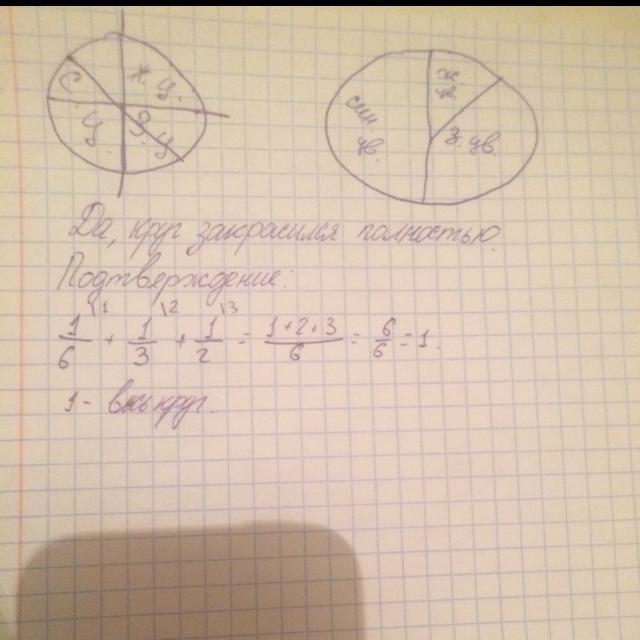 ж. ц.
С
З
Ц
Ц
ж.
син.
цв.
З. цв
Да, круг закрасился полностью.
Подтверждение:
1/6 \1 + 1/3 \2 + 1/2 \3 = 1+2+3/6 = 6/6 = 1.
1 - весь круг.